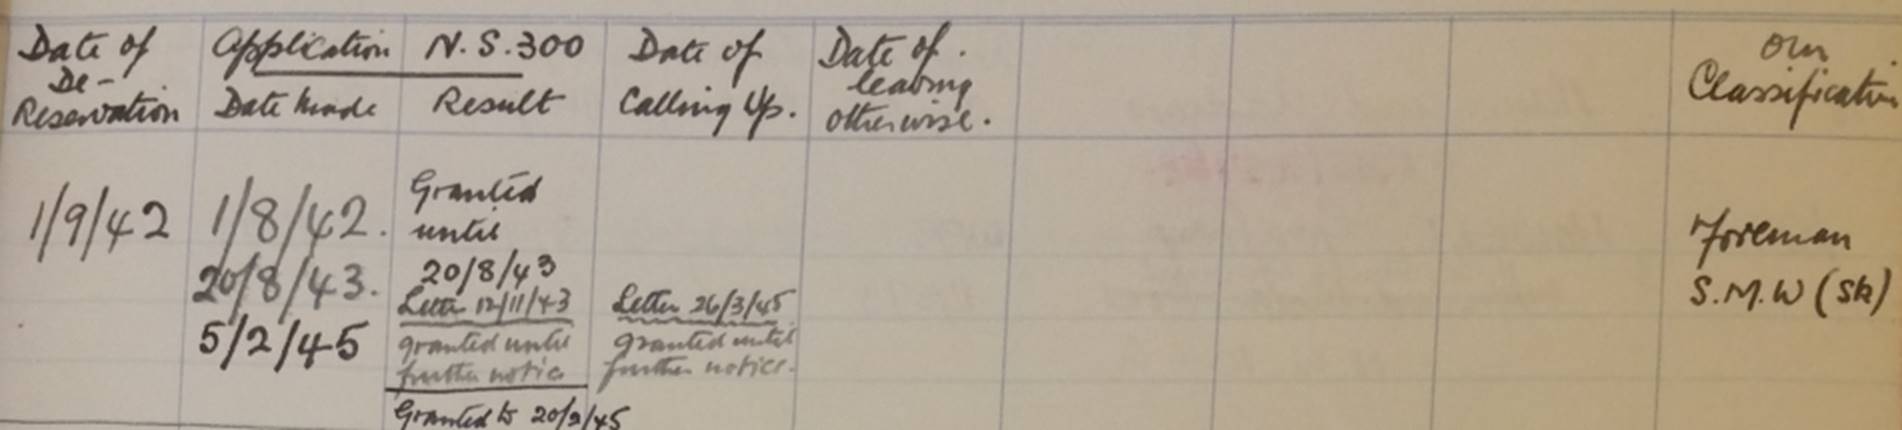 Date of
De-
Reservation
Application N.S.300
Date made
Result
Date of
Calling Up.
Date of.
leaving
otherwise.
Our
Classification
1/9/42
1/8/42.
20/8/43.
5/2/45
Granted
until
20/8/43
Letter 12/11/43
granted until
further notice
Granted to 20/2/45
Letter 26/3/45
Granted until
further notice.
Foreman
S.M.W (Sk)